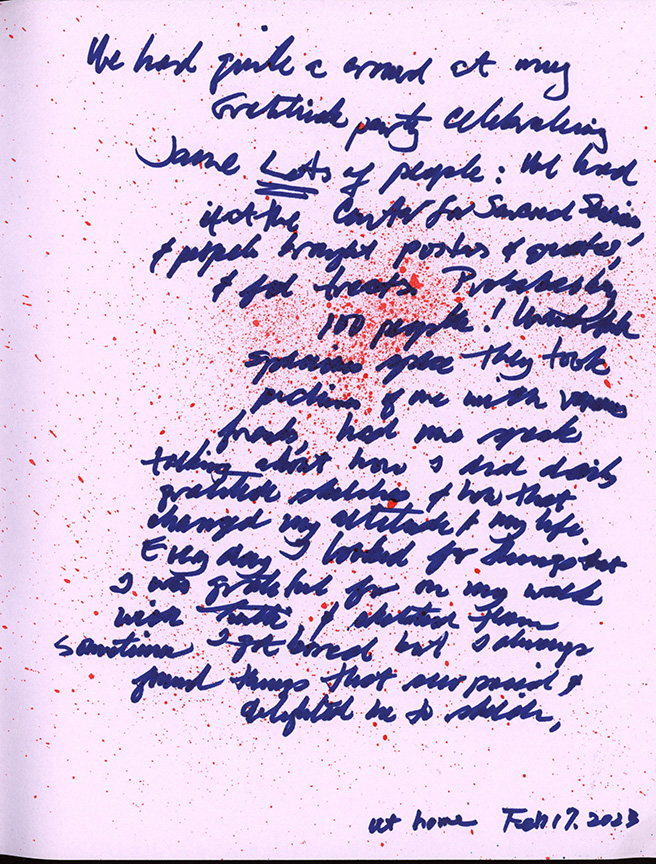 We had quite a crowd at my
Gratitude party celebrating
Lots of people: We had
it at the Center for
& people brought posters & quotes,
& food treats. Probably
100 people!
spacious space they took
pictures of me with various
friends, had me speak
talking about how I did daily
gratitude sketches & how that
changed my attitude & my life.
Every day I looked for things that
I was grateful for on my walk
with & sketched them
sometimes I got bored but I always
found things that surprised &
delighted me to sketch,
at home Feb 17. 2023